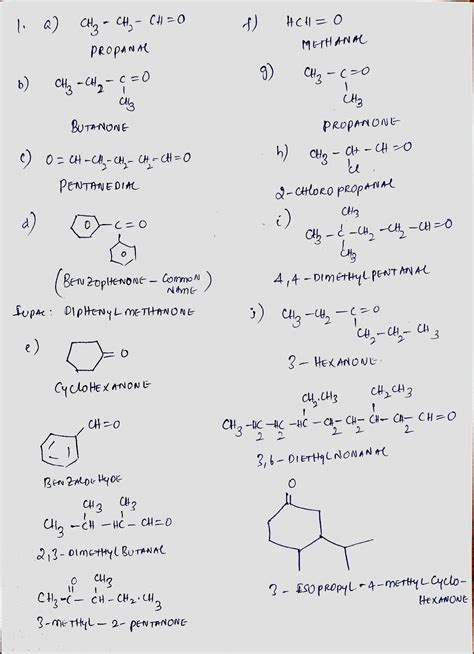 1. a) CH3 - CH2 - CH=O
PROPANAL
b) CH3 - CH2 - C = O
CH3
BUTANONE
c) O = CH - CH2 - CH2 - CH2 - CH=O
PENTANEDIAL
d) C = O
(BENZOPHENONE - COMMON NAME)
IUPAC: DIPHENYL METHANONE
e) = O
CYCLOHEXANONE
CH=O
BENZALDEHYDE
CH3 CH3
CH3 - CH - HC - CH=O
2,3-DIMETHYL BUTANAL
O CH3
CH3 - C - CH - CH2 - CH3
3-METHYL - 2 - PENTANONE
f) HCH = O
METHANAL
g) CH3 - C = O
CH3
PROPANONE
h) CH3 - CH - CH = O
Cl
2-CHLORO PROPANAL
i) CH3
CH3 - C - CH2 - CH2 - CH=O
CH3
4,4 - DIMETHYL PENTANAL
j) CH3 - CH2 - C = O
CH2 - CH2 - CH3
3 - HEXANONE
CH2.CH3 CH2CH3
CH3 - HC2 - HC2 - HC - CH2 - CH2 - CH - CH2 - CH=O
3,6 - DIETHYL NONANAL
O
3 - ISOPROPYL - 4 - METHYL CYCLO-
HEXANONE